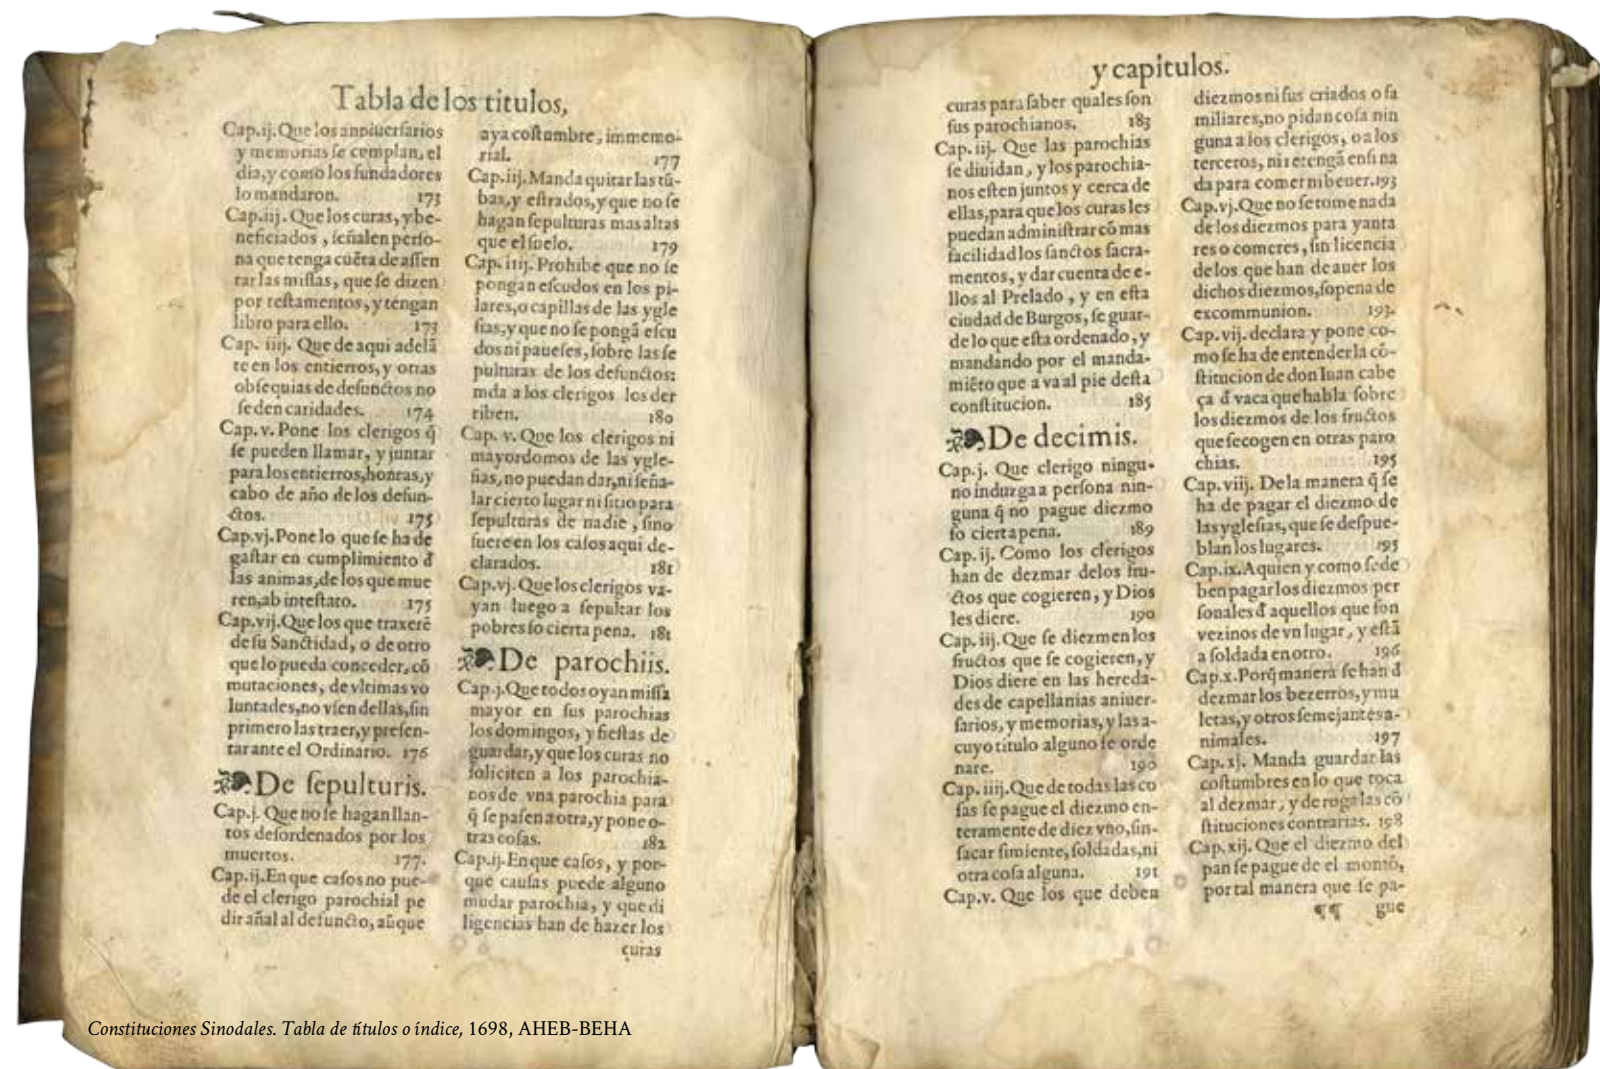 Tabla de los titulos,
Cap.ij. Que los anniuersarios
y memorias se cumplan, el
dia, y como los fundadores
lo mandaron. 173
Cap.iij. Que los curas, y be-
neficiados, señalen perso-
na que tenga cuẽta de assen
tar las missas, que se dizen
por testamentos, y tengan
libro para ello. 173
Cap. iiij. Que de aqui adelã
te en los entierros, y otras
obsequias de defunctos no
se den caridades. 174
Cap. v. Pone los clerigos q̃
se pueden llamar, y juntar
para los entierros, honras, y
cabo de año de los defun-
ctos. 175
Cap.vj. Pone lo que se ha de
gastar en cumplimiento đ
las animas, de los que mue
ren, ab intestato. 175
Cap.vij. Que los que traxerẽ
de su Sanctidad, o de otro
que lo pueda conceder, cõ
mutaciones, de vltimas vo
luntades, no vsen dellas, sin
primero las traer, y presen-
tar ante el Ordinario. 176
De sepulturis.
Cap.j. Que no se hagan llan-
tos desordenados por los
muertos. 177.
Cap.ij. En que casos no pue-
de el clerigo parochial pe
dir añal al defuncto, aũque
aya costumbre, immemo-
rial. 177
Cap.iij. Manda quitar las tũ-
bas, y estrados, y que no se
hagan sepulturas mas altas
que el suelo. 179
Cap. iiij. Prohibe que no se
pongan escudos en los pi-
lares, o capillas de las ygle
sias, y que no se pongã escu
dos ni paueses, sobre las se
pulturas de los defunctos:
mda a los clerigos los der
riben. 180
Cap. v. Que los clerigos ni
mayordomos de las ygle-
sias, no puedan dar, ni seña-
lar cierto lugar ni sitio para
sepulturas de nadie, sino
fuere en los casos aqui de-
clarados. 181
Cap.vj. Que los clerigos va-
yan luego a sepultar los
pobres so cierta pena. 181
De parochiis.
Cap.j. Que todos oyan missa
mayor en sus parochias
los domingos, y fiestas de
guardar, y que los curas no
soliciten a los parochia-
nos de vna parochia para
q̃ se pasen a otra, y pone o-
tras cosas. 182
Cap.ij. En que casos, y por-
que causas puede alguno
mudar parochia, y que di
ligencias han de hazer los
curas
y capitulos.
curas para saber quales son
sus parochianos. 183
Cap. iij. Que las parochias
se diuidan, y los parochia-
nos esten juntos y cerca de
ellas, para que los curas les
puedan administrar cõ mas
facilidad los sanctos sacra-
mentos, y dar cuenta de e-
llos al Prelado, y en esta
ciudad de Burgos, se guar-
de lo que esta ordenado, y
mandando por el manda-
miẽto que a va al pie desta
constitucion. 185
De decimis.
Cap.j. Que clerigo ningu-
no induzga a persona nin-
guna q̃ no pague diezmo
so cierta pena. 189
Cap. ij. Como los clerigos
han de dezmar delos fru-
ctos que cogieren, y Dios
les diere. 190
Cap. iij. Que se diezmen los
fructos que se cogieren, y
Dios diere en las hereda-
des de capellanias aniuer-
sarios, y memorias, y las a-
cuyo titulo alguno se orde
nare. 190
Cap. iiij. Que de todas las co
sas se pague el diezmo en-
teramente de diez vno, sin-
sacar simiente, soldadas, ni
otra cosa alguna. 191
Cap.v. Que los que deben
diezmos ni sus criados o fa
miliares, no pidan cosa nin
guna a los clerigos, o a los
terceros, ni retengã ensi na
da para comer ni beuer. 193
Cap.vj. Que no se tome nada
de los diezmos para yanta
res o comeres, sin licencia
de los que han de auer los
dichos diezmos, sopena de
excommunion. 193.
Cap.vij. declara y pone co-
mo se ha de entender la cõ-
stitucion de don Iuan cabe
ça đ vaca que habla sobre
los diezmos de los fructos
que se cogen en otras paro
chias. 195
Cap. viij. De la manera q̃ se
ha de pagar el diezmo de
las yglesias, que se despue-
blan los lugares. 195
Cap.ix. A quien y como se de
ben pagar los diezmos per
sonales đ aquellos que son
vezinos de vn lugar, y estã
a soldada en otro. 196
Cap.x. Porq̃ manera se han đ
dezmar los bezerros, y mu
letas, y otros semejantes a-
nimales. 197
Cap. xj. Manda guardar las
costumbres en lo que toca
al dezmar, y deroga las cõ
stituciones contrarias. 198
Cap.xij. Que el diezmo del
pan se pague de el montõ,
por tal manera que se pa-
¶¶ gue
Constituciones Sinodales. Tabla de títulos o índice, 1698, AHEB-BEHA